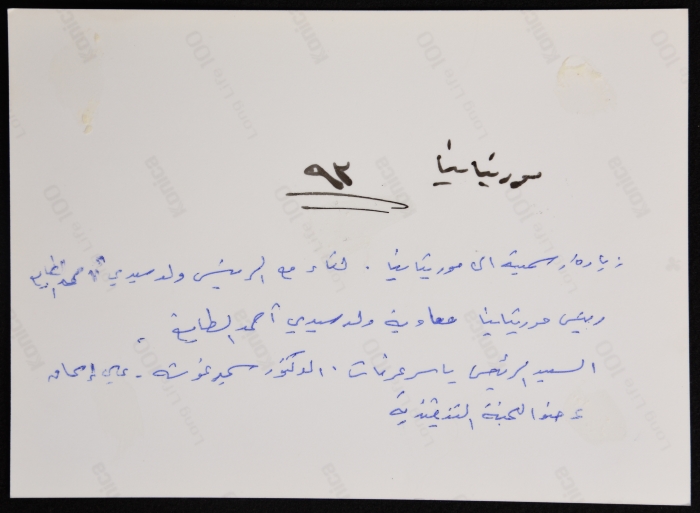 موريتانيا ٩٣
زيارة رسمية الى موريتانيا . لقاء مع الرئيس ولد سيدي أحمد الطايع
رئيس موريتانيا معاوية ولد سيدي أحمد الطايع ،
السيد الرئيس ياسر عرفات . الدكتور سمير غوشه - علي إسحاق
عضو اللجنة التنفيذية
Konica
Long Life 100